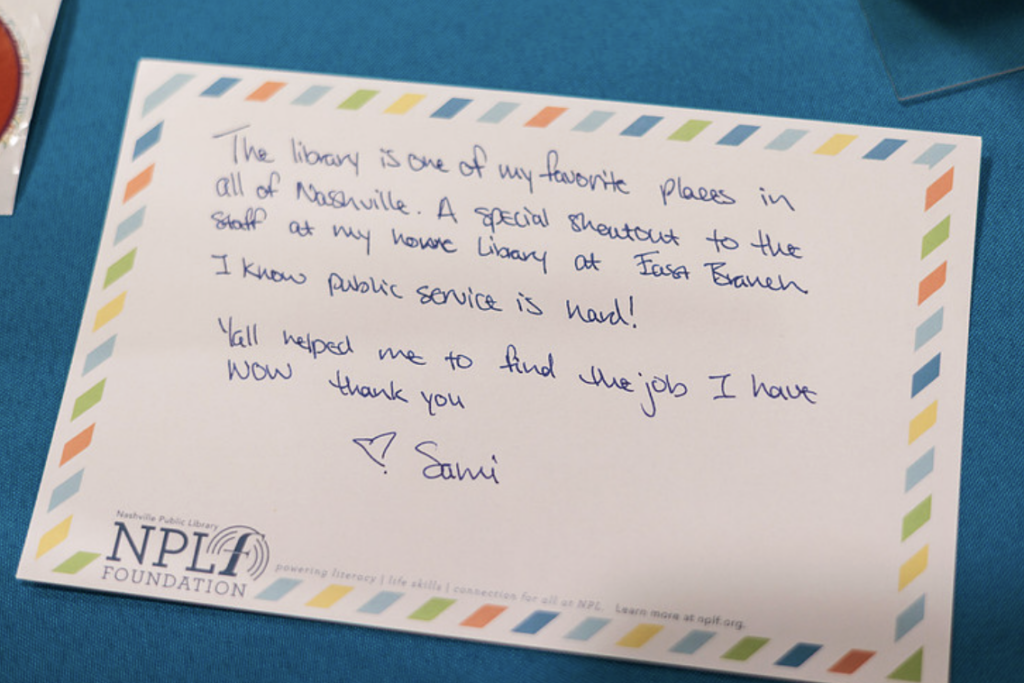 The library is one of my favorite places in
all of Nashville. A special shoutout to the
staff at my home library at East Branch.
I know public service is hard!
Yall helped me to find the job I have
now thank you
♡ Sami
Nashville Public Library
NPLf
FOUNDATION
powering literacy | life skills | connection for all at NPL. Learn more at nplf.org.